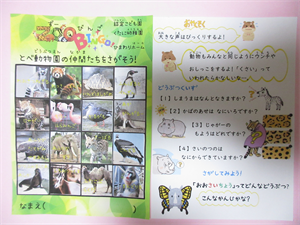 ずー
びんご
BINGO!
認定こども園
ひまわりホーム
とべ動物園の仲間たちをさがそう!
なまえ(
)
おやくそく
大きな声はびっくりするよ!
動物もみんなと同じようにウンチや
おしっこをするよ!「くさい」って
いわれたらかなしいな
どうぶつくいず
【1】しまうまはなんとなきますか?
【2】かばのあせは なにいろですか?
【3】じゃがーの
もようはどれですか?
【4】さいのつのは
なにからできていますか?
さがしてみよう!
「おおさいちょう」ってどんなどうぶつ?
こんなかんじかな?